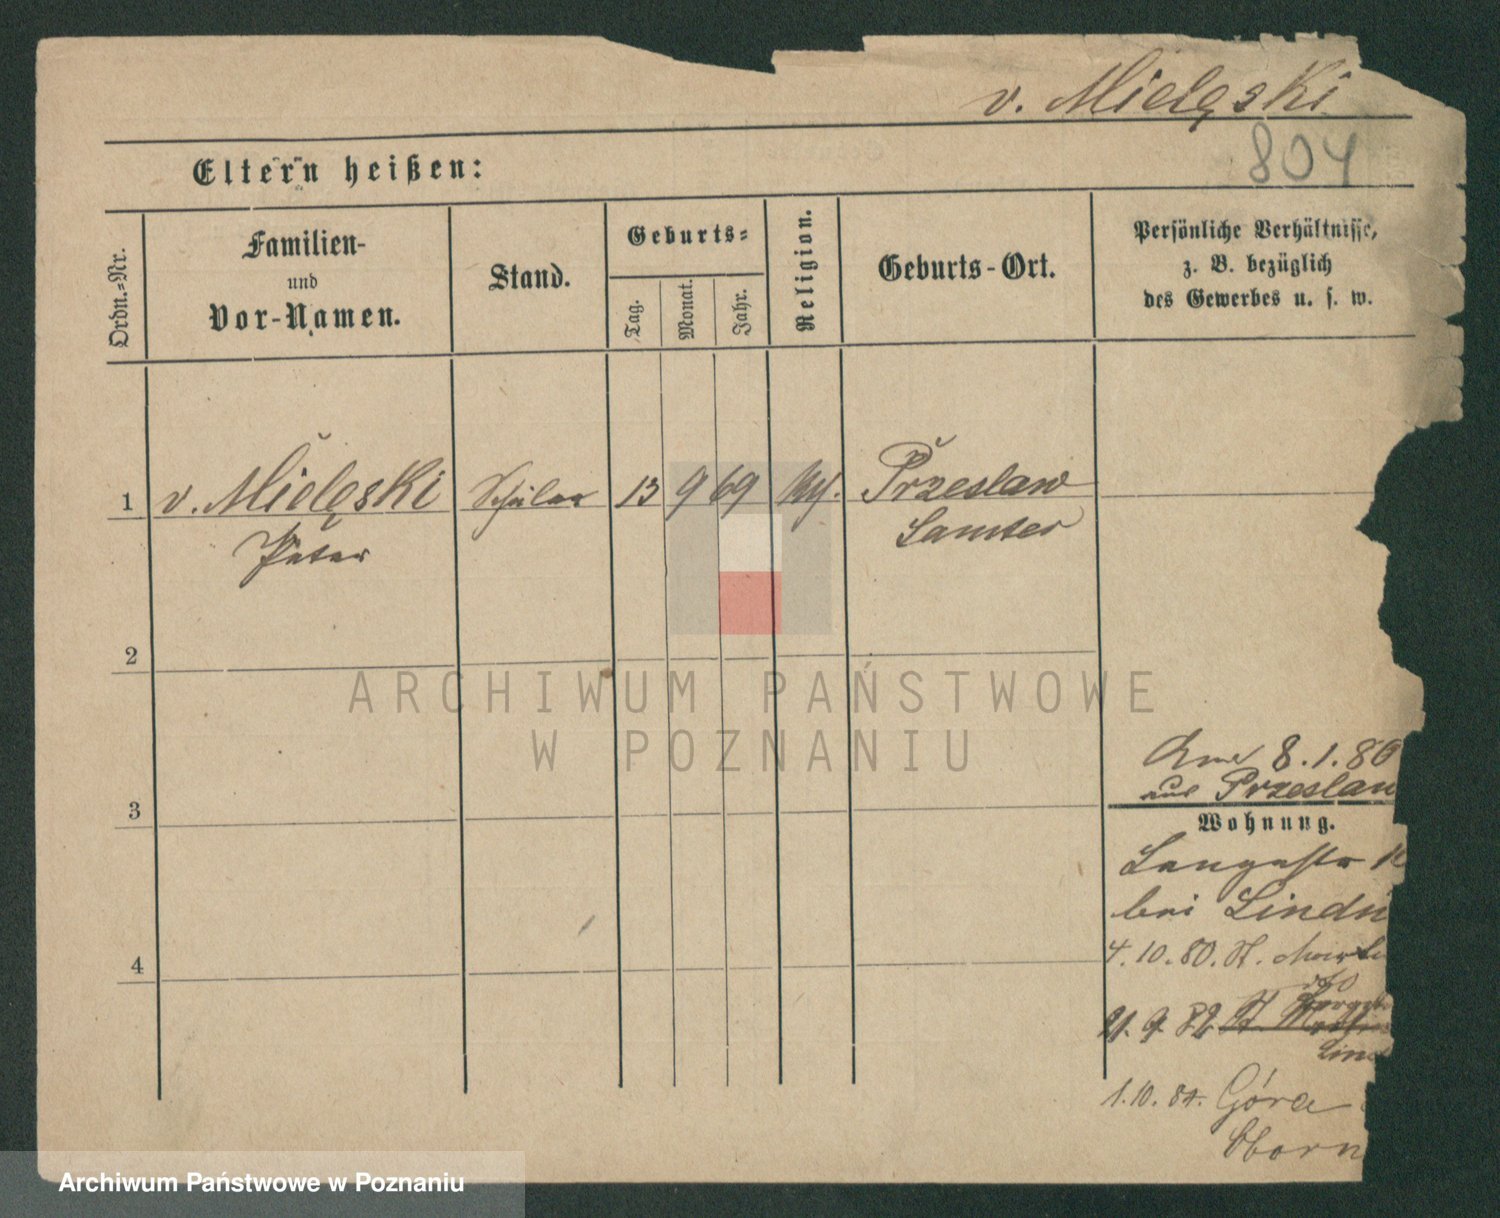 v. Mielęski
804
Eltern heißen:
Ordn.-Nr.
Familien-
und
Vor-Namen.
Stand.
Geburts-
Tag.
Monat.
Jahr.
Religion.
Geburts-Ort.
Persönliche Verhältnisse,
z. B. bezüglich
des Gewerbes u. s. w.
1 v. Mielęski Schüler 13 9 69 Przeslaw
Peter Samter
2
3
4
8.1.80
aus Przeslaw
Wohnung.
Langestr
bei
4.10.80. St.
21.9.82 St
1.10.84. Góra
ARCHIWUM PAŃSTWOWE
W POZNANIU
Archiwum Państwowe w Poznaniu